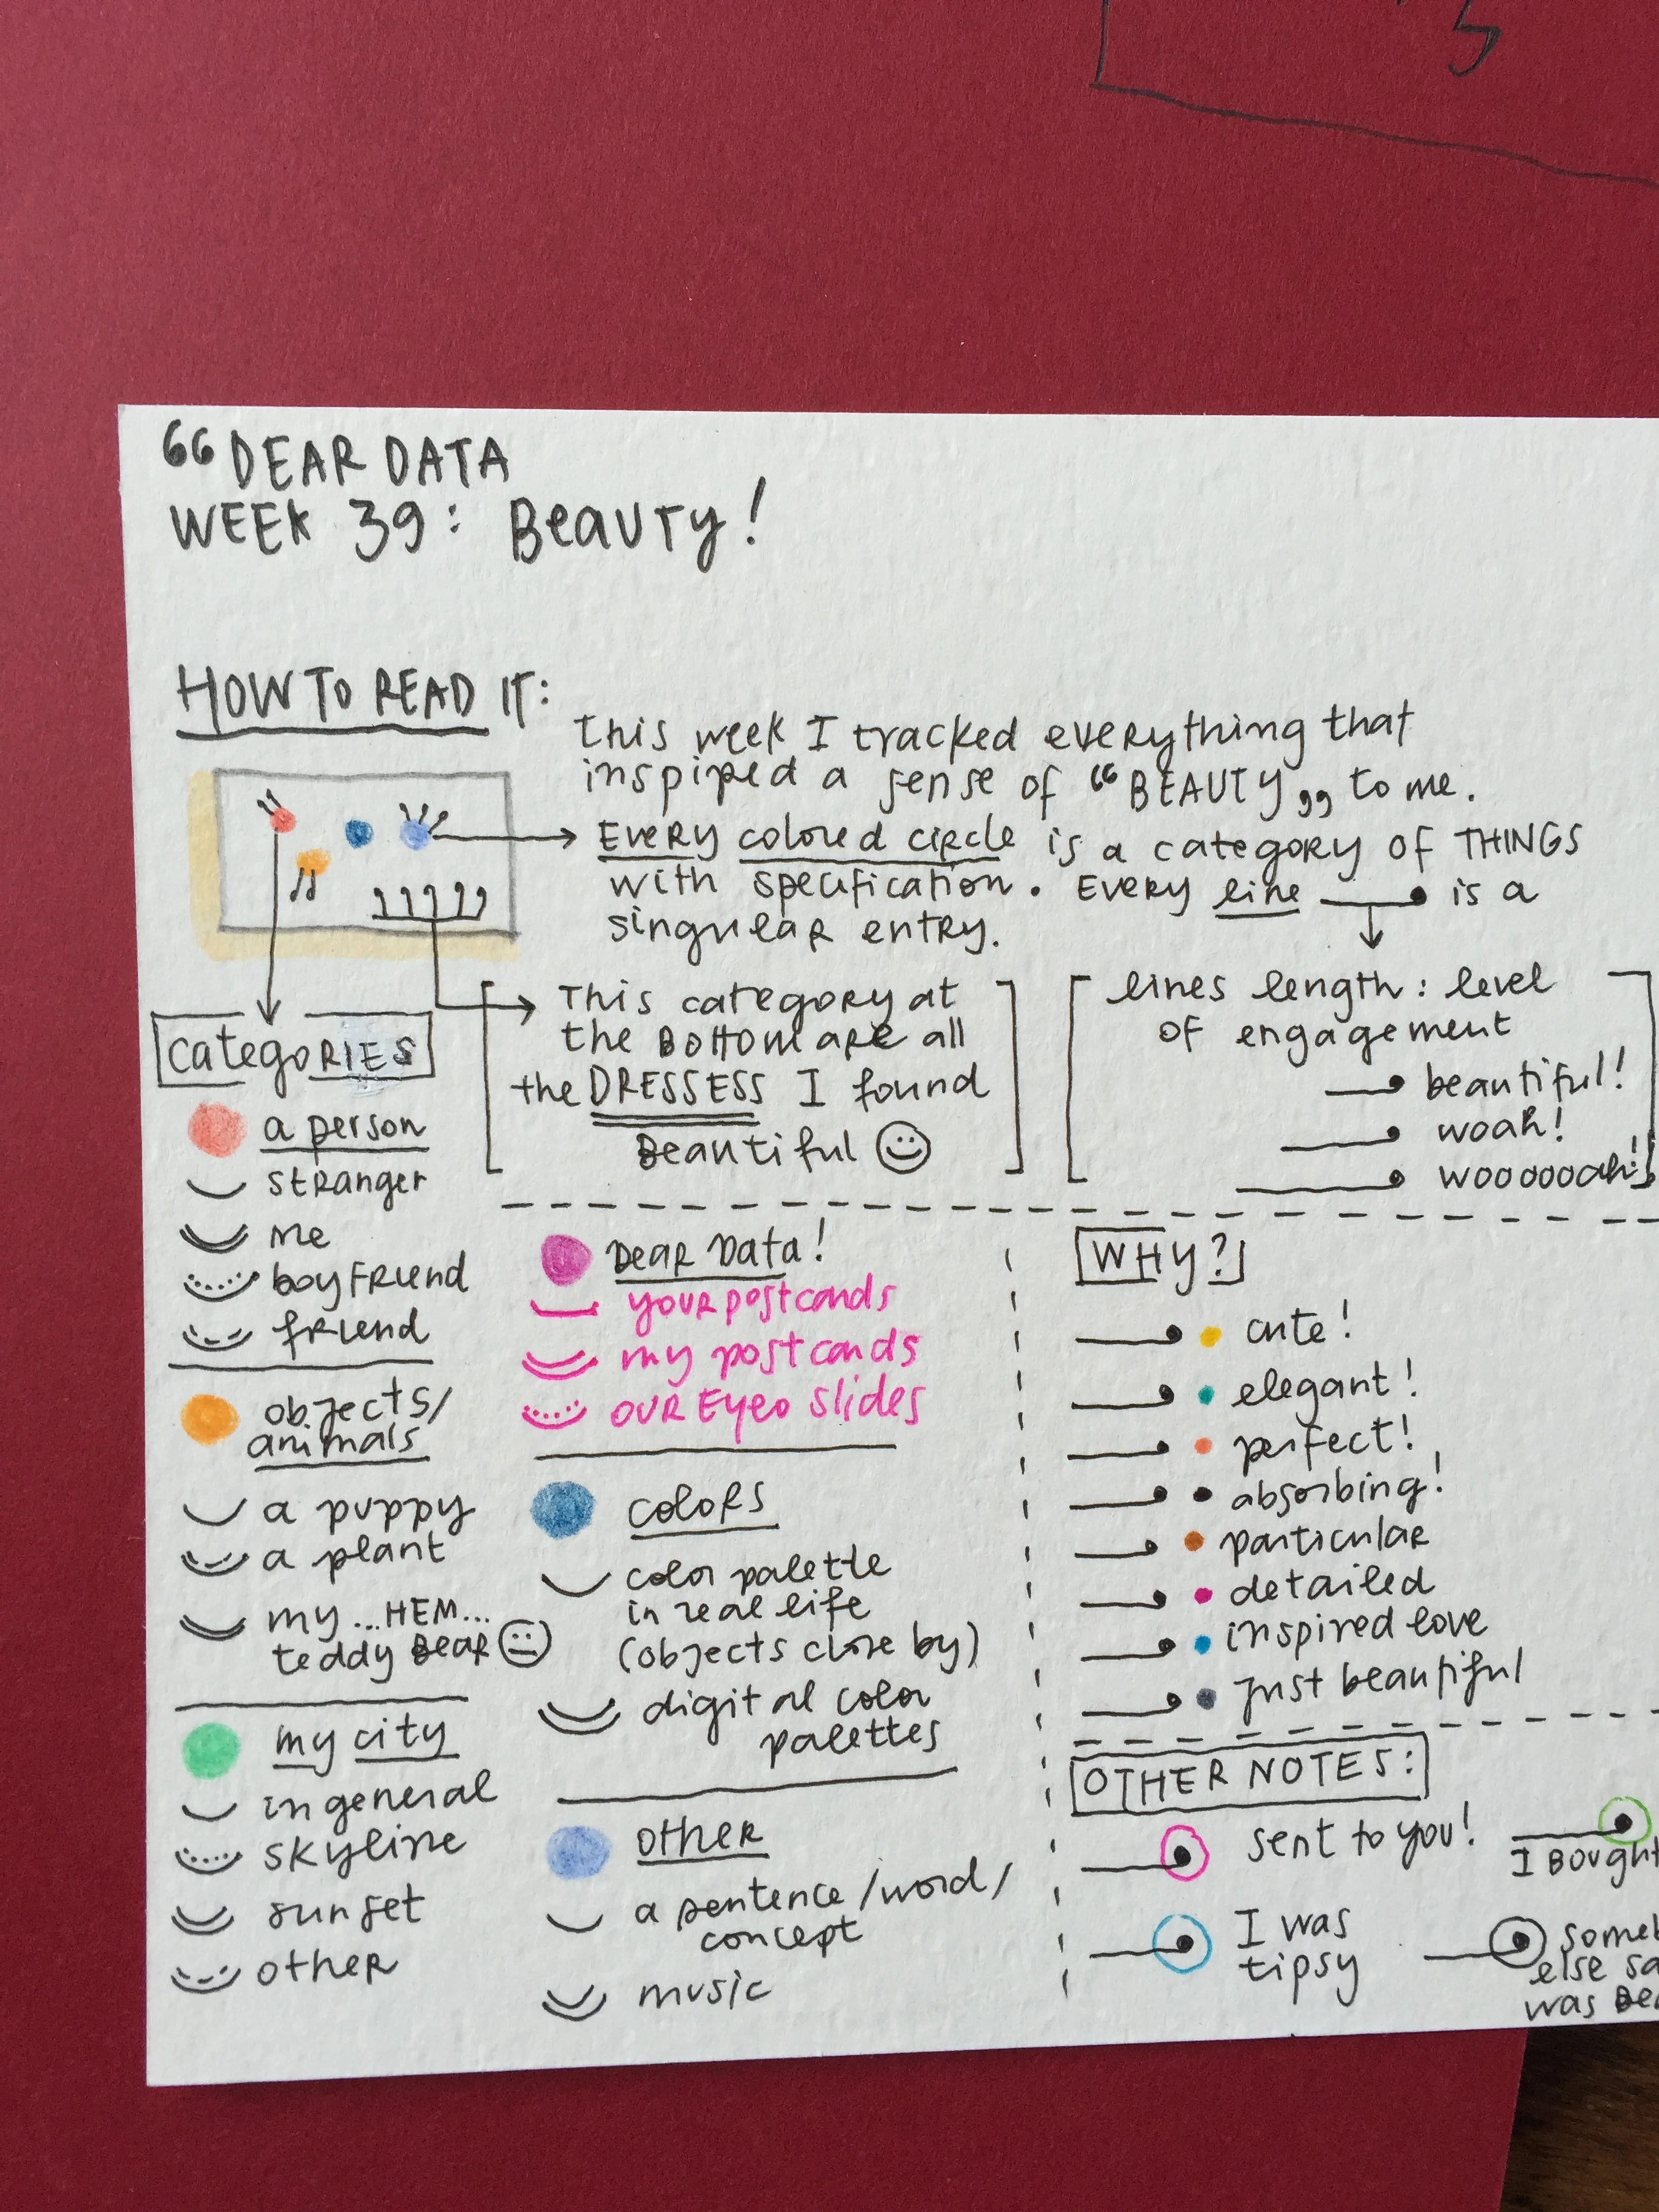 “DEAR DATA
WEEK 39: Beauty!
HOW TO READ IT:
This week I tracked everything that
inspired a sense of “BEAUTY„ to me.
EVERY colored circle is a category OF THINGS
with specification. EVERY line is a
singular entry.
This category at
the BOTTOM are all
the DRESSESS I found
Beautiful
lines length: level
of engagement
beautiful!
woah!
woooooah!
categories
a person
stranger
me
boyfriend
friend
objects/
animals
a puppy
a plant
my ...HEM...
teddy Bear
my city
in general
skyline
sunset
other
Dear Data!
your postcards
my postcards
our Eyeo slides
colors
color palette
in real life
(objects close by)
digital color
palettes
other
a sentence/word/
concept
music
WHY?
cute!
elegant!
perfect!
absorbing!
particular
detailed
inspired love
just beautiful
OTHER NOTES:
sent to you!
I Bought
I was
tipsy
else
was